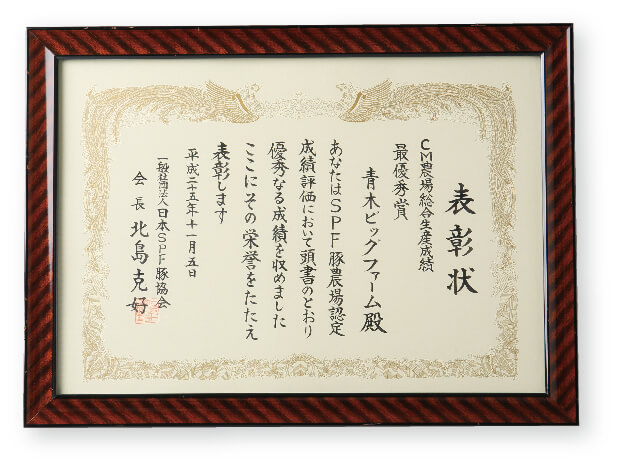 表彰状
CM農場総合生産成績
最優秀賞
青木ビッグファーム殿
あなたはSPF豚農場認定
成績評価において頭書のとおり
優秀なる成績を収めました
ここにその栄誉をたたえ
表彰します
平成二十五年十一月五日
一般社団法人日本SPF豚協会
会長 北島克好